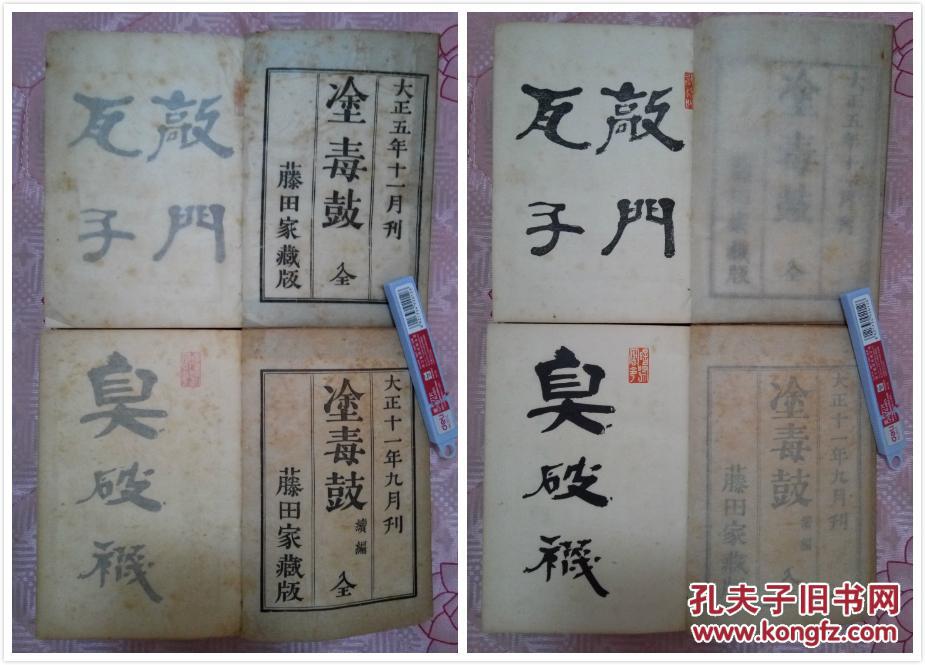 大正五年十一月刊
塗毒鼓 全
藤田家藏版
敲門
瓦子
大正十一年九月刊
塗毒鼓 續編 全
藤田家藏版
臭破襪
敲門
瓦子
大正五年十一月刊
塗毒鼓 全
藏版
臭破襪
大正十一年九月刊
塗毒鼓 續編 全
藤田家藏版
孔夫子旧书网
www.kongfz.com